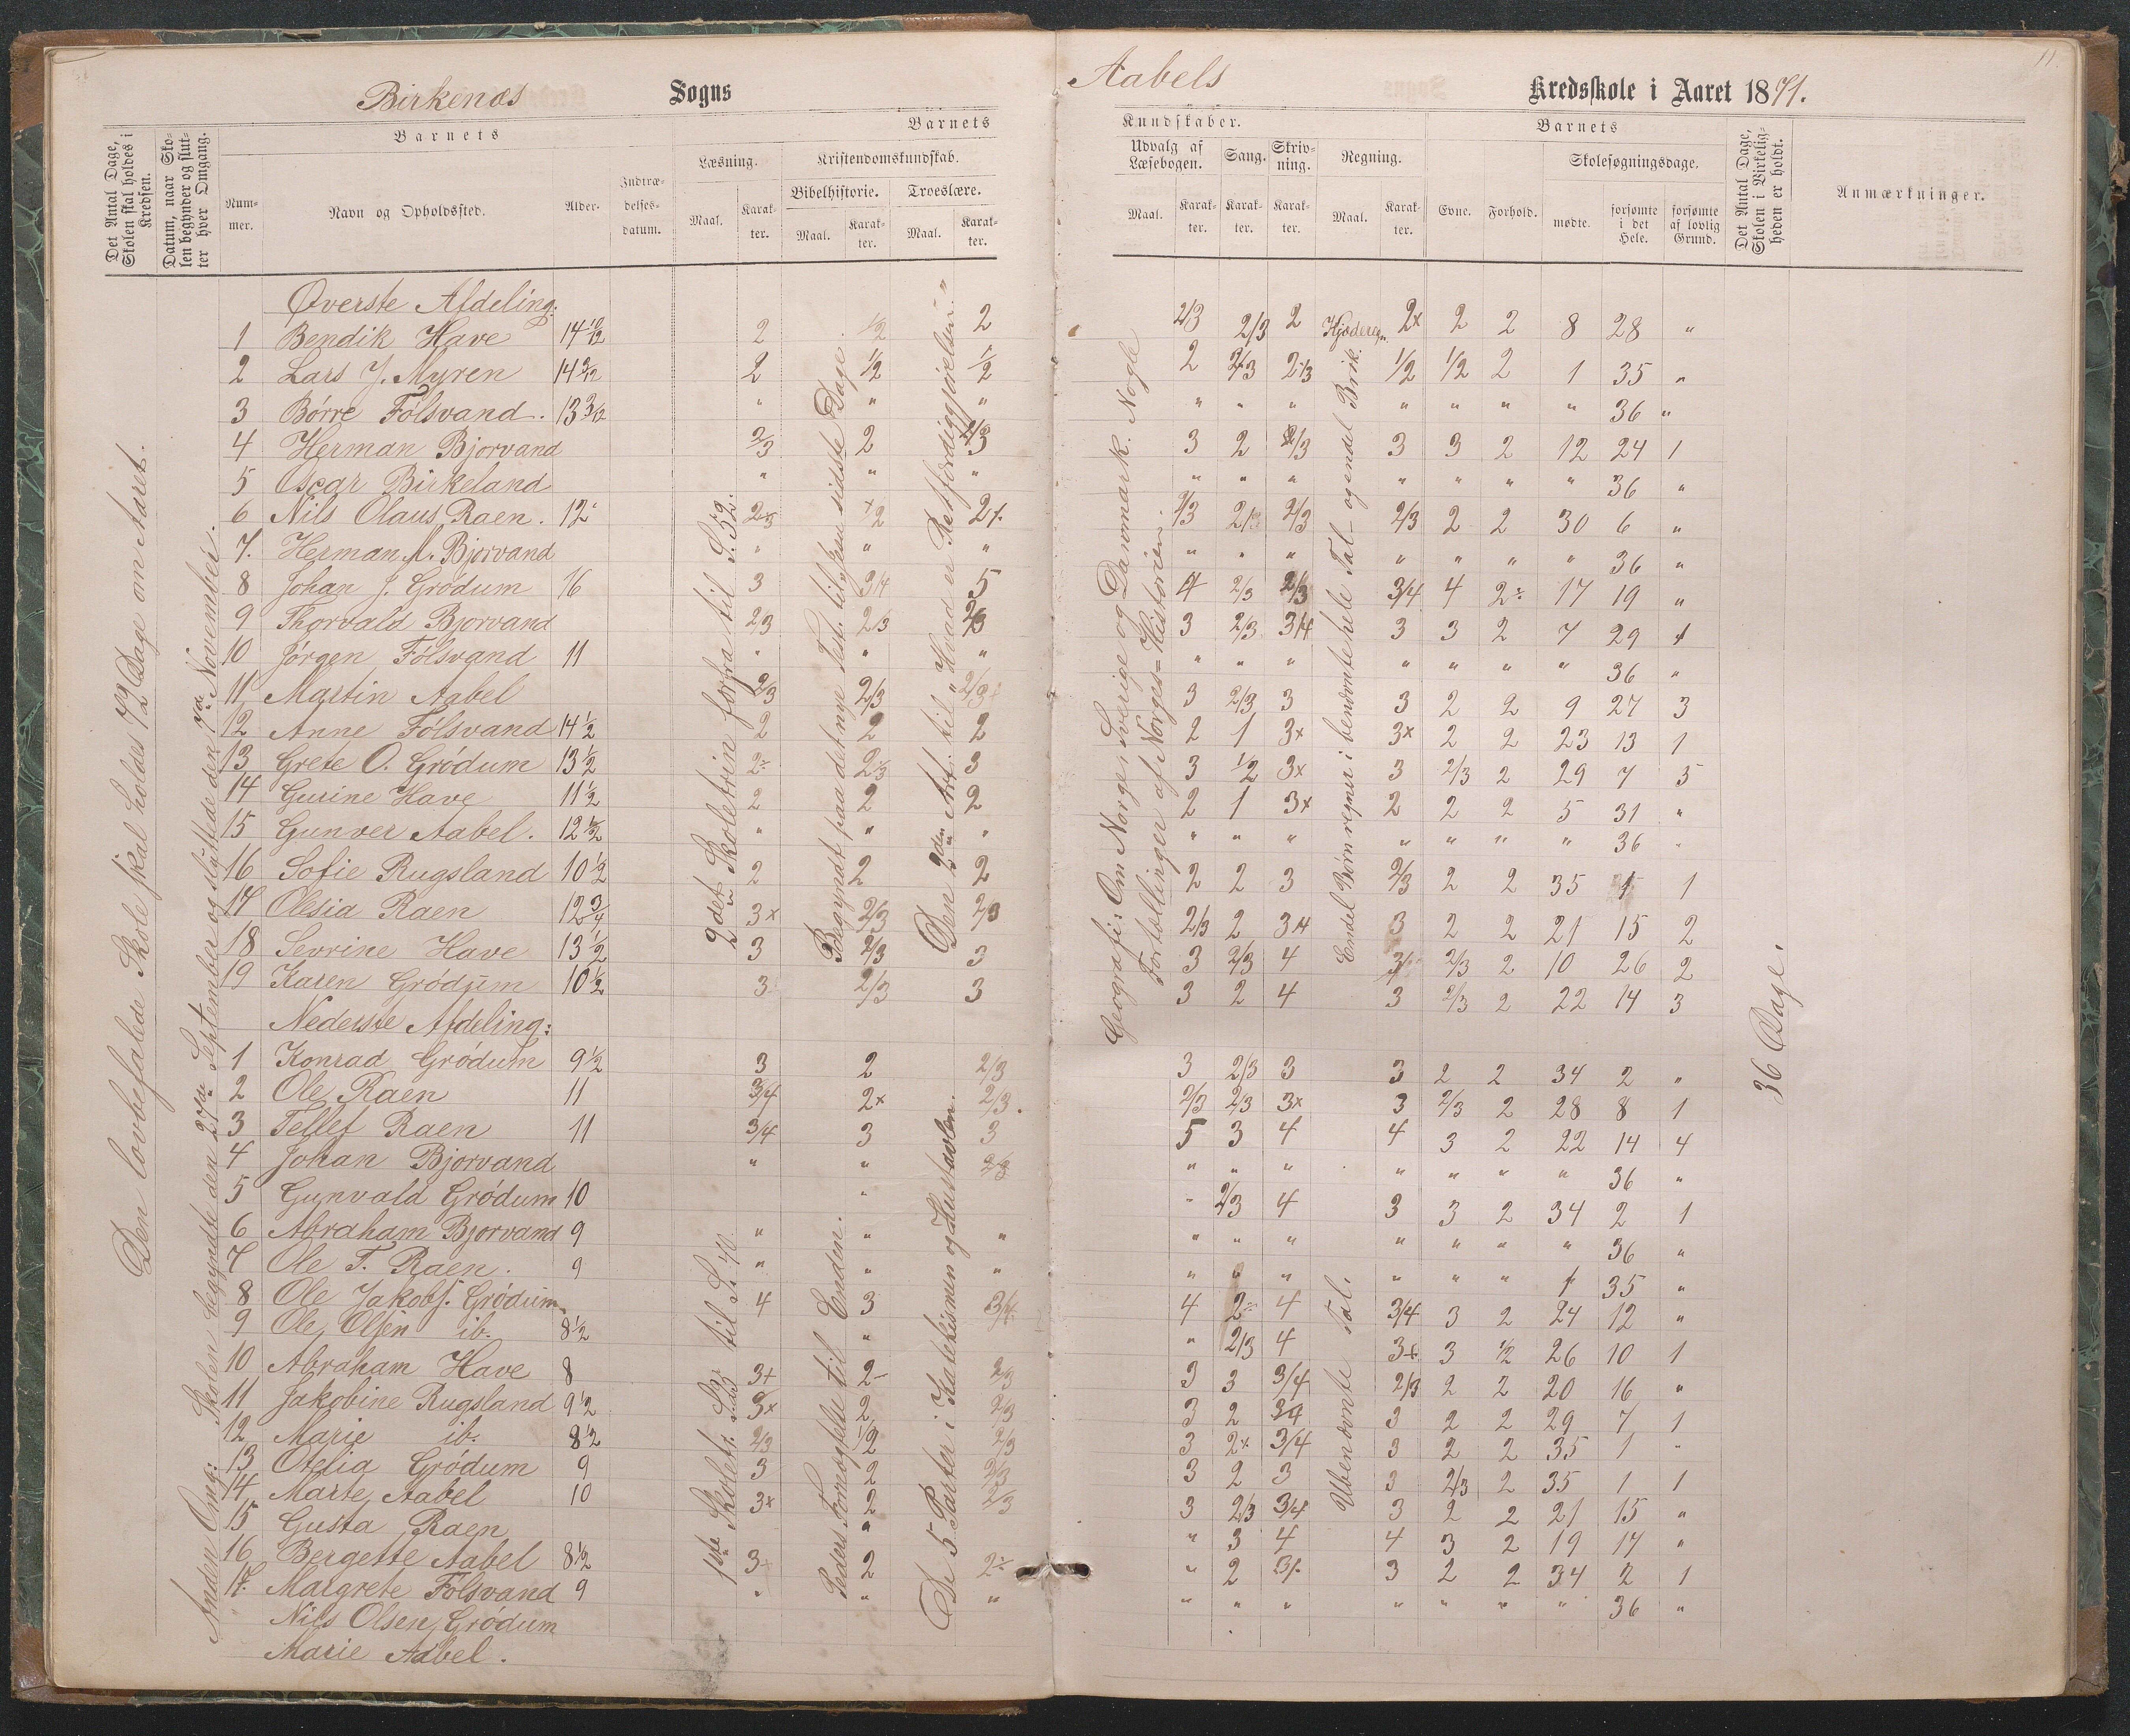 Birkenæs Sogns
Aabels Kredsskole i Aaret 1871.
11
Det Antal Dage, Skolen skal holdes i Kredsen.
Datum, naar Skolen begynder og slutter hver Omgang.
Barnets
Nummer.
Navn og Opholdssted.
Alder.
Indtrædelsesdatum.
Barnets
Læsning.
Maal.
Karakter.
Kristendomskundskab.
Bibelhistorie.
Maal.
Karakter.
Troeslære.
Maal.
Karakter.
Kundskaber.
Udvalg af Læsebogen.
Maal.
Karakter.
Sang.
Karakter.
Skrivning.
Karakter.
Regning.
Maal.
Karakter.
Barnets
Evne.
Forhold.
Skolesøgningsdage.
mødte.
forsømte i det Hele.
forsømte af lovlig Grund.
Det Antal Dage, Skolen i Virkeligheden er holdt.
Anmærkninger.
Den lovbefalede Skole skal holdes 72 Dage om Aaret.
Anden Omg: Skolen begyndte den 27de September og sluttede den November.
2det Skoletrin forfra til S. 52.
Begyndt paa det nye Test. til sidste Dage
Den 2den Art. til "Hvad er Retfærdiggjørelsen"
Geografi: Om Norge, Sverige og Danmark. Nogle Fortællinger af Norges=Historien.
Endel Børn regner i benævnte hele Tal – og endel Brik.
36 Dage.
Øverste Afdeling:
1 Bendik Have 14 10/12 2 1/2 2 2/3 2/3 2 2x 2 2 8 28 "
2 Lars J. Myren 2 1/2 1/2 2 2/3 1/2 1/2 2 1 35 "
3 Børre Fólsvand. 13 3/12 " " " " " " " " " " 36 "
4 Herman Bjorvand 2/3 2 3 2 2/3 3 3 2 12 24 1
5 Oscar Birkeland " " " " " " " " " " 36 "
6 Nils Olaus Raen. 12 2/3 2/3 2/3 2/3 2 2 30 6 "
7. Herman M. Bjorvand " " " " " " " " " " 36 "
8 Johan J. Gródum 16 3 3/4 5 4 2/3 2/3 3/4 4 2 17 19 "
9 Thorvald Bjorvand 2/3 2/3 2/3 3 2/3 3/4 3 3 2 7 29 1
10 Jórgen Fólsvand 11 " " " " " " " " " " 36 "
11 Martin Aabel 2/3 2/3 2/3 3 2/3 3 3 2 2 9 27 3
12 Anne Fólsvand 14 1/2 2 2 2 2 1 3x 3x 2 2 23 13 1
13 Grete O. Gródum 13 1/2 2 2/3 3 3 1/2 3x 3 2/3 2 29 7 5
14 Gurine Have 11 1/2 2 2 2 2 1 3x 2 2 2 5 31 "
15 Gunver Aabel. 12 1/2 " " " " " " " " " " 36 "
16 Sofie Rugsland 10 1/2 2 2 2 2 2 3 2/3 2 2 35 1 1
17 Olesia Raen 12 3/4 3x 2/3 2/3 2/3 2 3/4 3 2 2 21 15 2
18 Sevrine Have 13 1/2 3 2/3 3 3 2/3 4 2/3 2 10 26 2
19 Karen Gródum 10 1/2 3 2/3 3 3 2 4 3 2/3 2 22 14 3
Nederste Afdeling:
1ste Skoletr. til S. 40
Peders Fornægtelse til Enden.
De 5 Parter i Katekismen og Hustavlen.
Ubenævnte Tal.
1 Konrad Gródum 9 1/2 3 2 2/3 3 2/3 3 3 2 2 34 2 "
2 Ole Raen 11 3/4 2x 2/3. 2/3 2/3 3x 3 2/3 2 28 8 1
3 Tellef Raen 11 3/4 3 3 5 3 4 4 3 2 22 14 4
4 Johan Bjorvand " " 2/3 " " " " " " " 36 "
5 Gunvald Gródum 10 " " 2/3 4 3 3 2 34 2 1
6 Abraham Bjorvand 9 " " " " " " " " " " 36 "
7 Ole T. Raen. 9 " " " " " " " " " 1 35 "
8 Ole Jakobs. Gródum 4 3 3/4 4 2 4 3/4 3 2 24 12 "
9 Ole Olsen ib. 8 1/2 " " 2/3 4 3x 3 1/2 26 10 1
10 Abraham Have 8 3+ 2 2/3 3 3 3/4 2/3 2 2 20 16 "
11 Jakobine Rugsland 9 1/2 3x 2 2/3 3 2 3/4 3 2 2 29 7 1
12 Marie ib. 8 1/2 2/3 1/2 2/3 3 2x 3/4 3 2 2 35 1 "
13 Otelia Gródum 9 3 2 2/3 3 2 3 3 2/3 2 35 1 1
14 Marte Aabel 10 3x 2 2/3 3 2/3 3/4 3 2 2 21 15 "
15 Gusta Raen " " 3 4 4 3 2 19 17 "
16 Bergette Aabel 8 1/2 3 2 2 " 2 3 3 2 2 34 2 1
17. Margrete Fólsvand 9 " " " " " " " " " " 36 "
Nils Olsen Gródum
Marie Aabel.